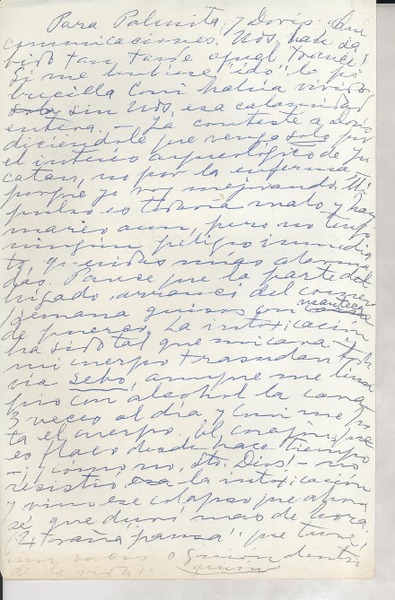 Para Palmita, y Doris. Qui
comunicaciones. Uds. han sa
bido tan tarde aquel trance!
Si me hubiese ido lo po
brecilla Coni habría vivido
sola sin Uds. esa calamidad
entera. — Ya contesté a Doris
diciéndole que venga solo por
el interés arqueológico de Yu
catán, no por la enferma
porque yo voy mejorando. Mi
pulso es todavía malo y hay
mareo aun, pero no tengo
ningún peligro inmedia
to, queridas mías alarma
das. Parece que la parte del
hígado arrancó del comer
1 semana guisos con manteca
de puerco. La intoxicación
ha sido tal que mi cara y
mi cuerpo trasudan toda
vía sebo, aunque me lim
pio con alcohol la cara
3 veces al día y Coni me
el cuerpo. El corazón, que
es flaco desde hace tiempo
— y como no, Sto. Dios! — no
resistió esa la intoxicación
y vino ese colapso que ahora
sé que duró más de hora.
"extraña pausa", que tuve
o guión dentro
de la vida! guión